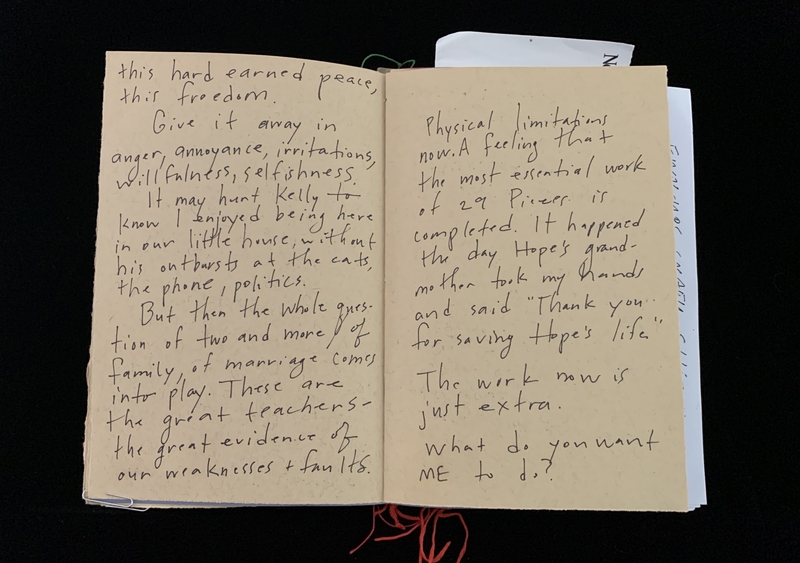 this hard earned peace,
this freedom.
Give it away in
anger, annoyance, irritations,
willfulness, selfishness.
It may hurt Kelly to
know I enjoyed being here
in our little house, without
his outbursts at the cats,
the phone, politics.
But then the whole ques-
tion of two and more, of
family, of marriage comes
into play. These are
the great teachers-
the great evidence of
our weaknesses + faults.
Physical limitations
now. A feeling that
the most essential work
of 29 Pieces is
completed. It happened
the day Hope's grand-
mother took my hands
and said "Thank you
for saving Hope's life."
The work now is
just extra.
What do you want
ME to do?